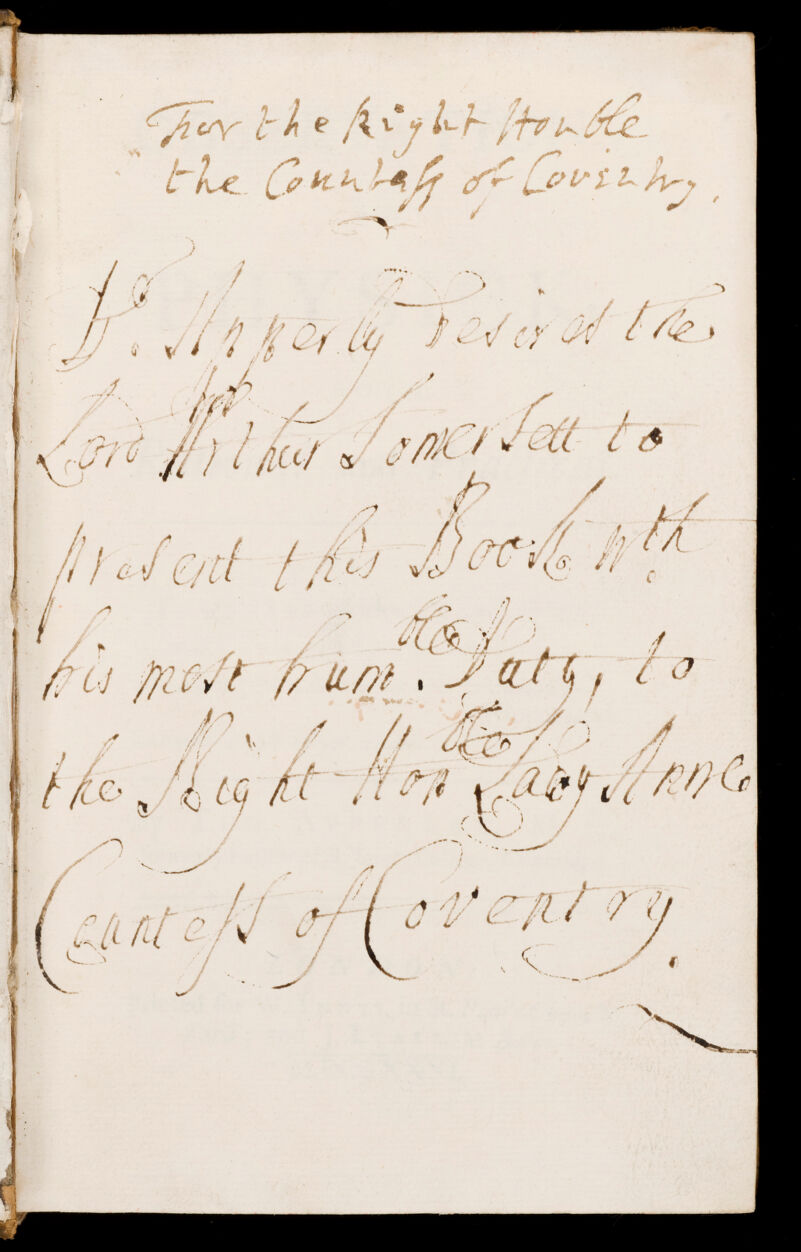 For the Right Honble
the Countess of Coventry.
Dr. Apperly desires the
Lord Arthur Somersett to
present this Book wth
his most humble Duty, to
the Right Honble Lady Anne
Countess of Coventry.